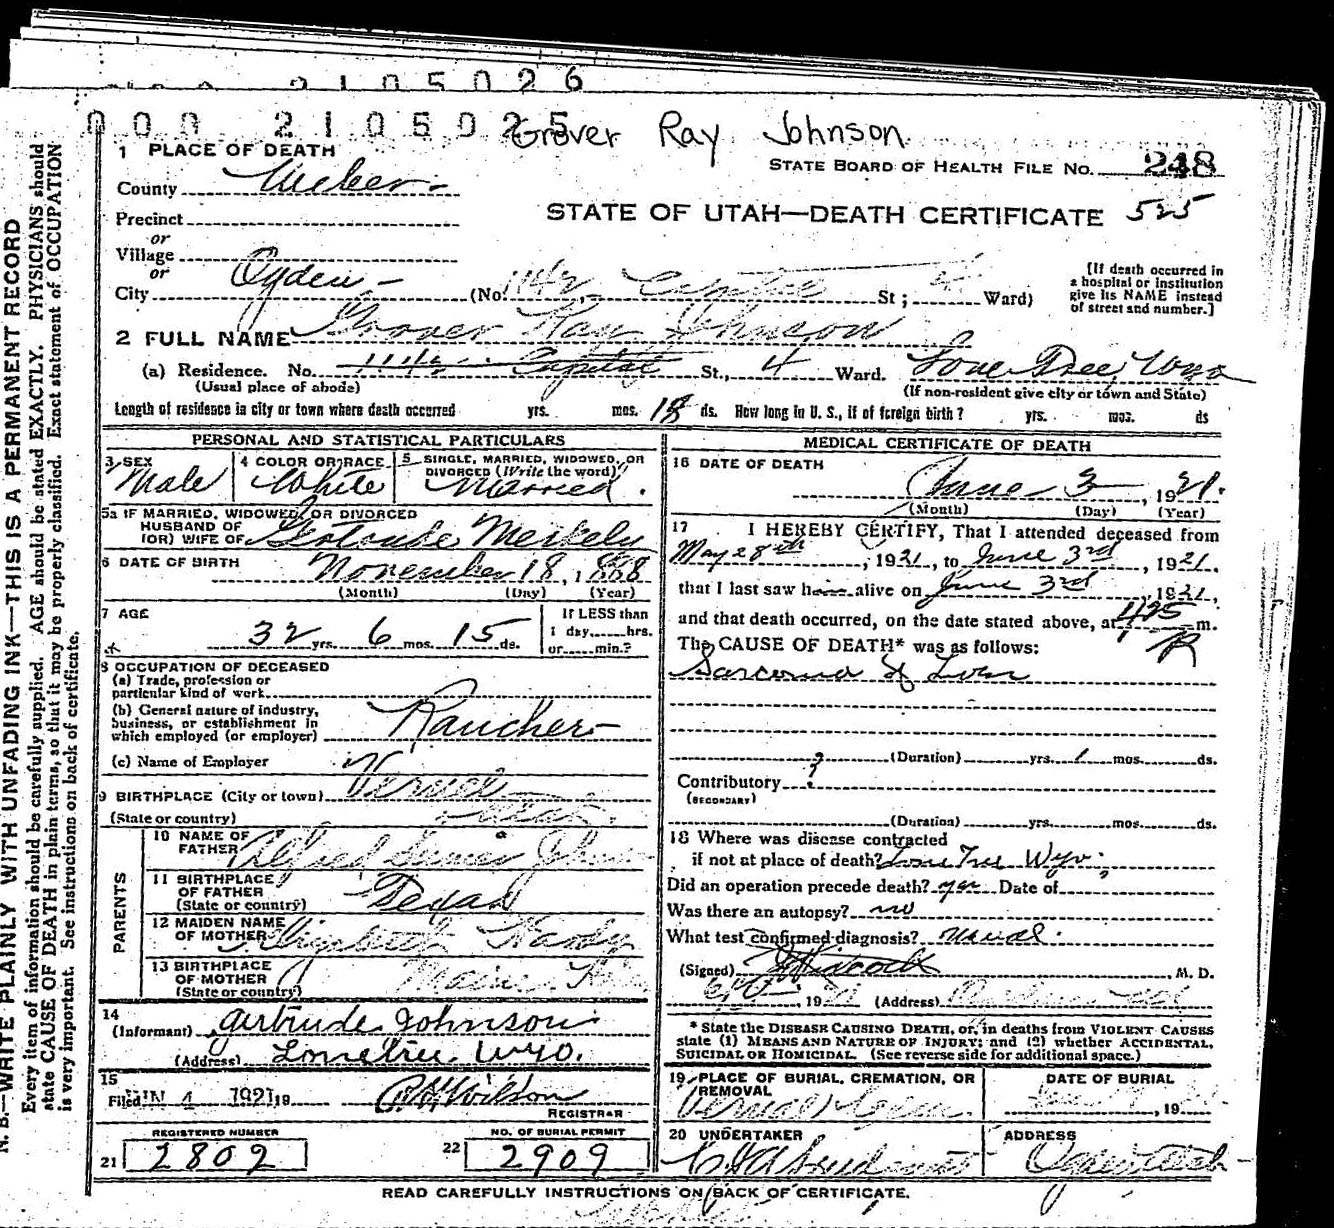 2105026
000 2105025
Grover Ray Johnson
1 PLACE OF DEATH
STATE BOARD OF HEALTH FILE No. 248
County Weber
STATE OF UTAH—DEATH CERTIFICATE 525
Precinct
or
Village
or
City Ogden (No. 114½ Capitol St; 4 Ward)
[If death occurred in
a hospital or institution
give its NAME instead
of street and number.]
2 FULL NAME Grover Ray Johnson
(a) Residence. No. 114½ Capitol St., 4 Ward. Lone Tree, Wyo
(Usual place of abode) (If non-resident give city or town and State)
Length of residence in city or town where death occurred yrs. mos. ds. How long in U. S., if of foreign birth? yrs. mos. ds
PERSONAL AND STATISTICAL PARTICULARS
3 SEX
Male
4 COLOR OR RACE
White
5 SINGLE, MARRIED, WIDOWED, OR
DIVORCED (Write the word)
Married.
5a IF MARRIED, WIDOWED, OR DIVORCED
HUSBAND OF
(OR) WIFE OF Gertrude Merkely
6 DATE OF BIRTH November 18, 1888
(Month) (Day) (Year)
7 AGE
32 yrs. 6 mos. 15 ds.
If LESS than
1 day hrs.
or min.?
8 OCCUPATION OF DECEASED
(a) Trade, profession or
particular kind of work
(b) General nature of industry,
business, or establishment in
which employed (or employer) Rancher
(c) Name of Employer
9 BIRTHPLACE (City or town) Vernal
(State or country) Utah
PARENTS
10 NAME OF
FATHER Alfred James Johnson
11 BIRTHPLACE
OF FATHER
(State or country) Texas
12 MAIDEN NAME
OF MOTHER Elizabeth
13 BIRTHPLACE
OF MOTHER
(State or country)
14
(Informant) Gertrude Johnson
(Address) Lonetree. Wyo.
15
Filed JUN 4 1921 19 Wilson
REGISTRAR
REGISTERED NUMBER
21 2809
NO. OF BURIAL PERMIT
22 2909
MEDICAL CERTIFICATE OF DEATH
16 DATE OF DEATH
June 3, 1921.
(Month) (Day) (Year)
17 I HEREBY CERTIFY, That I attended deceased from
May 28th, 1921, to June 3rd, 1921,
that I last saw h alive on June 3rd, 1921,
and that death occurred, on the date stated above, at m.
The CAUSE OF DEATH* was as follows:
Sarcoma of
(Duration) yrs. 1 mos. ds.
Contributory ?
(SECONDARY)
(Duration) yrs. mos. ds.
18 Where was disease contracted
if not at place of death? Lone Tree Wyo.
Did an operation precede death? yes Date of
Was there an autopsy? no
What test confirmed diagnosis? usual.
(Signed) M. D.
, 1921 (Address)
* State the DISEASE CAUSING DEATH, or, in deaths from VIOLENT CAUSES
state (1) MEANS AND NATURE OF INJURY; and (2) whether ACCIDENTAL,
SUICIDAL OR HOMICIDAL. (See reverse side for additional space.)
19 PLACE OF BURIAL, CREMATION, OR
REMOVAL
Vernal
DATE OF BURIAL
, 19
20 UNDERTAKER
ADDRESS
Ogden Utah
READ CAREFULLY INSTRUCTIONS ON BACK OF CERTIFICATE.
N. B.—WRITE PLAINLY WITH UNFADING INK—THIS IS A PERMANENT RECORD
Every item of information should be carefully supplied. AGE should be stated EXACTLY. PHYSICIANS should
state CAUSE OF DEATH in plain terms, so that it may be properly classified. Exact statement of OCCUPATION
is very important. See instructions on back of certificate.